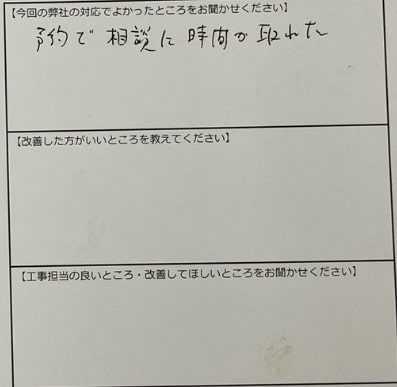 【今回の弊社の対応でよかったところをお聞かせください】
予約で相談に時間が取れた
【改善した方がいいところを教えてください】
【工事担当の良いところ・改善してほしいところをお聞かせください】